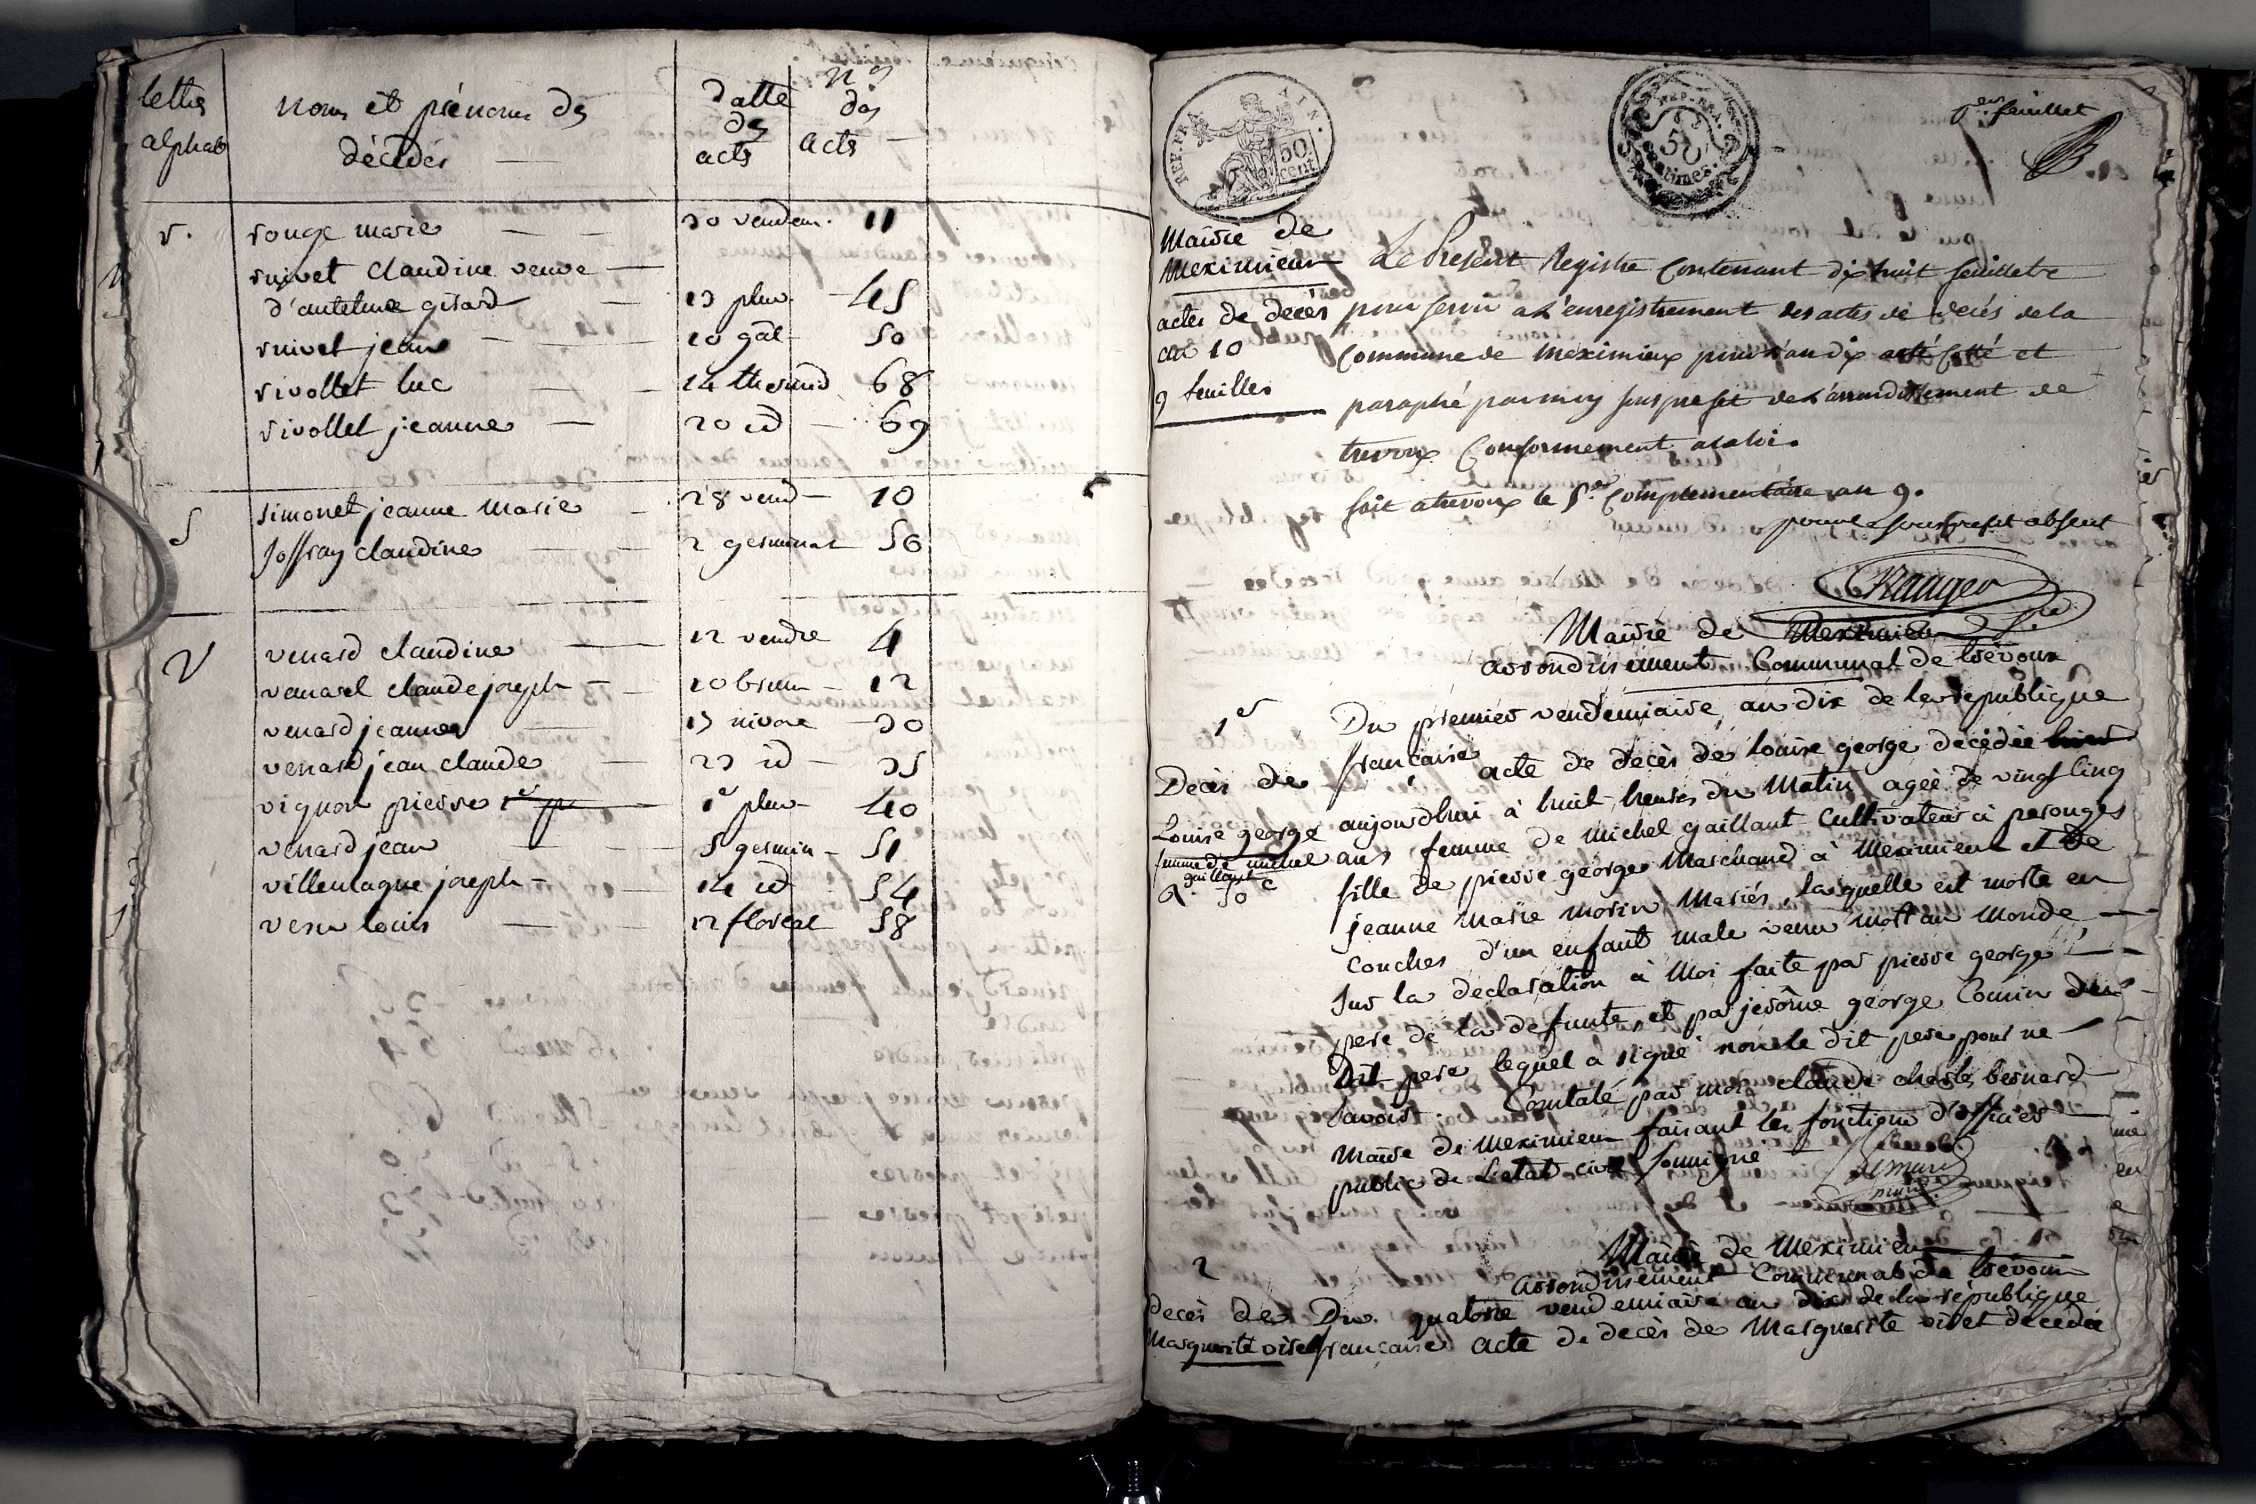 lettres noms et prénoms des datte nos
alphab décédés des des
actes actes
r. rouge marie 30 vendem. 11
rnivet claudine veuve
d'antelme girard 13 pluv. 45
rnivet jean 20 gal 50
rivollet luc 14 thermid 68
rivollet jeanne 20 id 69
S simonet jeanne marie 28 vend 10
Joffray claudine 2 germinal 56
V venard claudine 12 vendre 4
venard claude joseph 20 brum 12
venard jeanne 13 nivose 30
venard jean claude 23 id 35
vignon pierre 1er pluv 40
venard jean 5 germin 51
villemagne joseph 14 id 54
venu louis 12 floreal 58
REP. FRA. VIN.
50
cent
REP. FRA.
50
centimes.
1er feuillet
Mairie de
Meximieux
actes de décès
an 10
9 feuilles
Le Present Registre Contenant dix huit feuillets
pour servir a L'enregistrement des actes de decés de la
Commune de Meximieux pour l'an dix a été Cotté et
paraphé par moy souspréfet de L'arrondissement de
trevoux Conformement a la loi.
fait a trevoux le 5e Complementaire an 9.
pour le souspréfet absent
Mairie de Meximieux
arrondissement Communal de trévoux
1er Du premier vendemiaire an dix de la republique
française acte de décès de louise george décédée hier
Décès de
Louise george
femme de michel
gaillant
aujourdhui à huit heures du matin agée de vingt cinq
ans femme de michel gaillant Cultivateur à perouges
fille de pierre george Marchand à Meximieux et de
jeanne marie morin Mariés, laquelle est morte en
couches d'un enfant male venu mort au monde
sur la déclaration à moi faite par pierre george
pere de la defunte, et par jerôme george Cousin du
dit pere lequel a signé non le dit pere pour ne
savoir. Constaté par moi claude charles bernard
Maire de Meximieux faisant les fonctions d'officier
public de L'etat civil soussigné
Bernard
maire
Mairie de Meximieux
arrondissement Communal de trévoux
2 Du quatorze vendemiaire an dix de la république
decès de
Marguerite viret
française acte de decès de Marguerite viret décédée